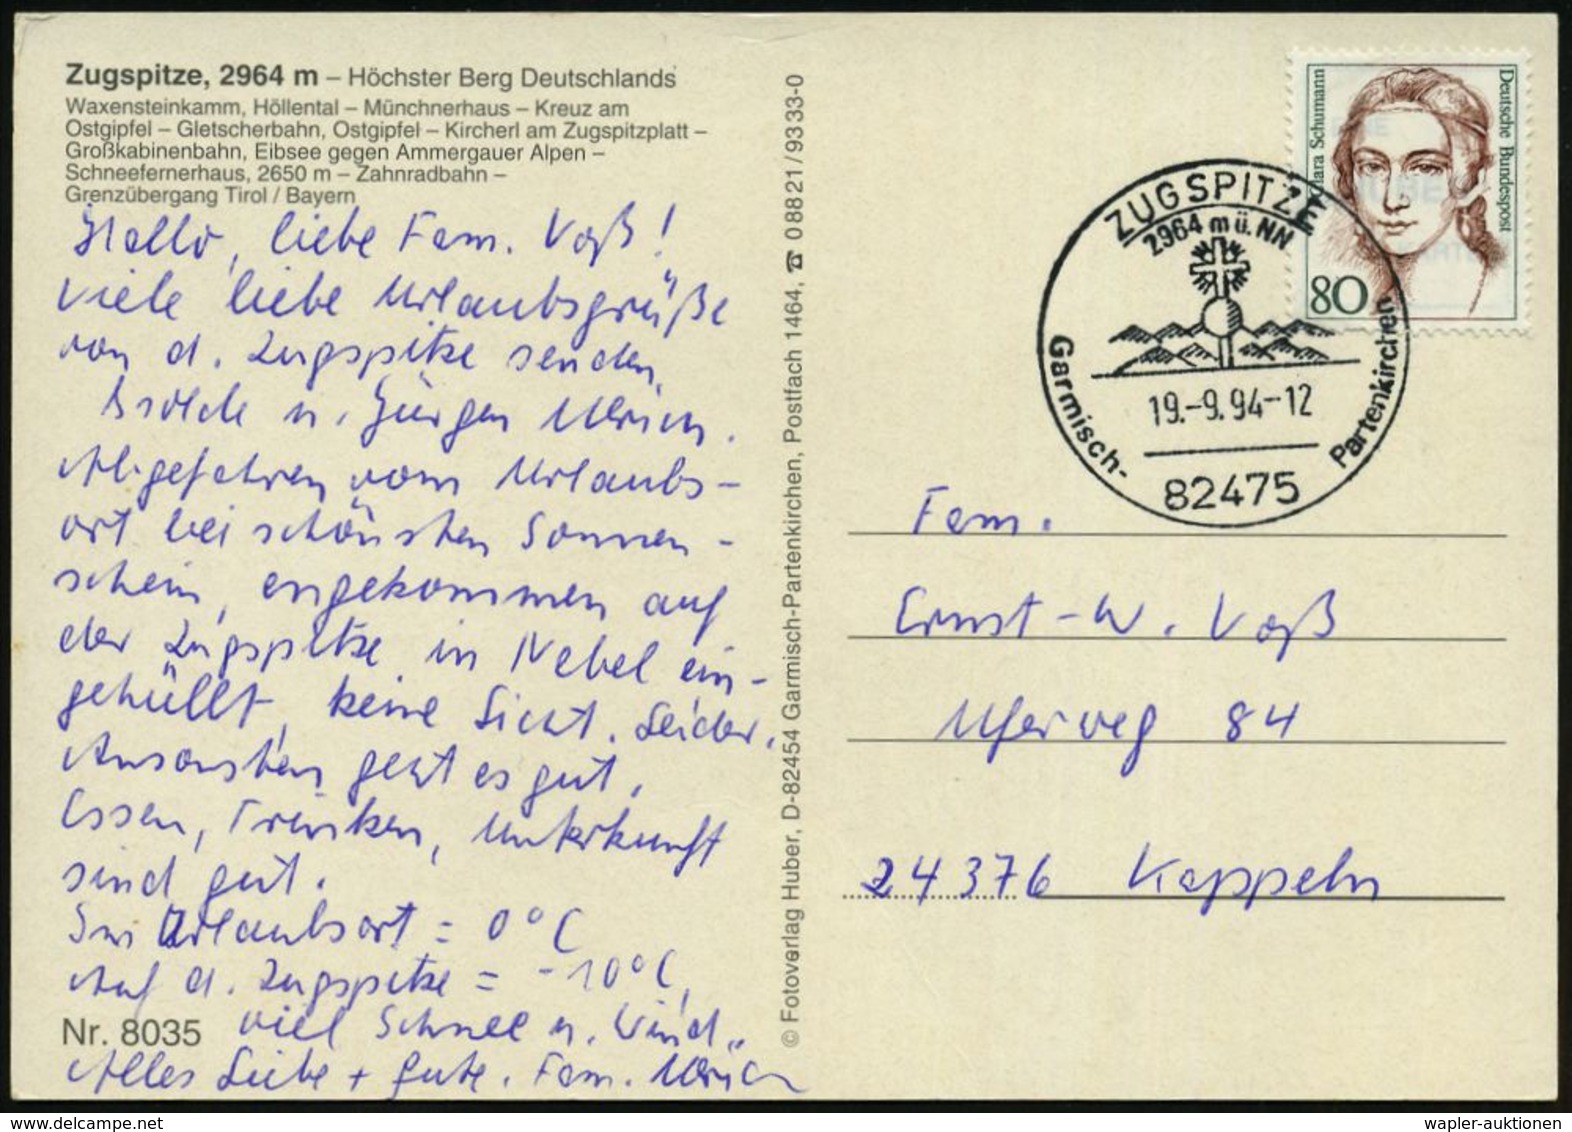 Zugspitze, 2964 m – Höchster Berg Deutschlands
Waxensteinkamm, Höllental – Münchnerhaus – Kreuz am
Ostgipfel – Gletscherbahn, Ostgipfel – Kircherl am Zugspitzplatt –
Großkabinenbahn, Eibsee gegen Ammergauer Alpen –
Schneefernerhaus, 2650 m – Zahnradbahn –
Grenzübergang Tirol / Bayern
Hallo, liebe Fam. Voß!
viele liebe Urlaubsgrüße
von d. Zugspitze senden
Isolde u. Jürgen Ulrich.
Abgefahren vom Urlaubs-
ort bei schönsten Sonnen-
schein, angekommen auf
der Zugspitze in Nebel ein-
gehüllt, keine Sicht. Leider.
Ansonsten geht es gut.
Essen, Trinken, Unterkunft
sind gut.
Im Urlaubsort = 0°C
Auf d. Zugspitze = -10°C,
viel Schnee u. Wind.
Alles Liebe + gute. Fam. Ulrich
Nr. 8035
© Fotoverlag Huber, D-82454 Garmisch-Partenkirchen, Postfach 1464, ☎ 0 88 21 / 93 33-0
Deutsche Bundespost
Clara Schumann
80
ZUGSPITZE
2964 m ü. NN
19.-9.94-12
Garmisch-
Partenkirchen
82475
Fam.
Ernst-W. Voß
Uferweg 84
24376 Kappeln
wapler-auktionen